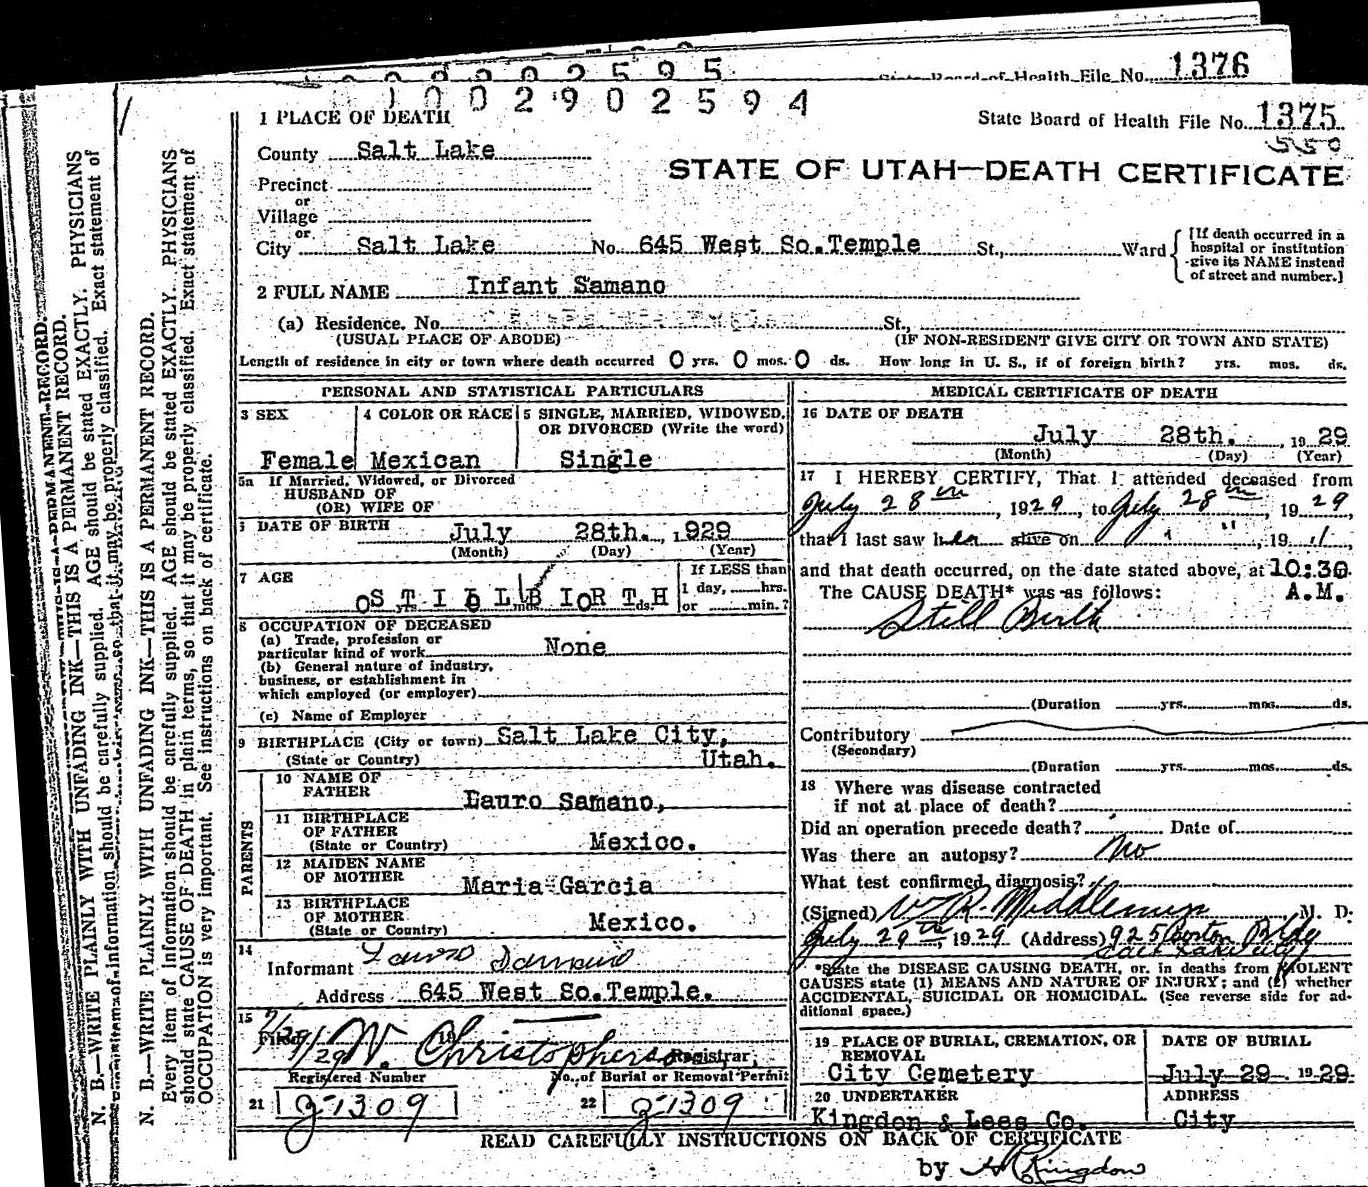 0 0 0 0 2 5 9 5
State Board of Health File No. 1376
1 0 0 2 9 0 2 5 9 4
1 PLACE OF DEATH
State Board of Health File No. 1375
550
County Salt Lake
STATE OF UTAH—DEATH CERTIFICATE
Precinct
or
Village
or
City Salt Lake No. 645 West So.Temple St., Ward
[If death occurred in a
hospital or institution
give its NAME instead
of street and number.]
2 FULL NAME Infant Samano
(a) Residence. No. St.,
(USUAL PLACE OF ABODE) (IF NON-RESIDENT GIVE CITY OR TOWN AND STATE)
Length of residence in city or town where death occurred 0 yrs. 0 mos. 0 ds. How long in U. S., if of foreign birth? yrs. mos. ds.
PERSONAL AND STATISTICAL PARTICULARS
3 SEX 4 COLOR OR RACE 5 SINGLE, MARRIED, WIDOWED,
OR DIVORCED (Write the word)
Female Mexican Single
5a If Married, Widowed, or Divorced
HUSBAND OF
(OR) WIFE OF
6 DATE OF BIRTH July 28th. 1929
(Month) (Day) (Year)
7 AGE If LESS than
1 day, hrs.
or min.?
S T I L L B I R T H
8 OCCUPATION OF DECEASED
(a) Trade, profession or
particular kind of work None
(b) General nature of industry,
business, or establishment in
which employed (or employer)
(c) Name of Employer
9 BIRTHPLACE (City or town) Salt Lake City,
(State or Country) Utah.
PARENTS
10 NAME OF
FATHER Lauro Samano,
11 BIRTHPLACE
OF FATHER
(State or Country) Mexico.
12 MAIDEN NAME
OF MOTHER Maria Garcia
13 BIRTHPLACE
OF MOTHER
(State or Country) Mexico.
14
Informant Lauro Samano
Address 645 West So.Temple.
15
Filed 7/29/29 19 W. Christopherson Registrar,
Registered Number No. of Burial or Removal Permit
21 g-1309 22 g-1309
MEDICAL CERTIFICATE OF DEATH
16 DATE OF DEATH
July 28th. , 1929
(Month) (Day) (Year)
17 I HEREBY CERTIFY, That I attended deceased from
July 28th, 1929, to July 28th, 1929,
that I last saw her alive on " " , 19 "
and that death occurred, on the date stated above, at 10:30
The CAUSE DEATH* was as follows: A.M.
Still Birth
(Duration yrs. mos. ds.
Contributory
(Secondary)
(Duration yrs. mos. ds.
18 Where was disease contracted
if not at place of death?
Did an operation precede death? Date of
Was there an autopsy? No
What test confirmed diagnosis?
(Signed) W. R. Middlemiss M. D.
July 29th, 1929 (Address) 925 Boston Bldg
Salt Lake City
*State the DISEASE CAUSING DEATH, or, in deaths from VIOLENT
CAUSES state (1) MEANS AND NATURE OF INJURY; and (2) whether
ACCIDENTAL, SUICIDAL OR HOMICIDAL. (See reverse side for ad-
ditional space.)
19 PLACE OF BURIAL, CREMATION, OR
REMOVAL
City Cemetery
DATE OF BURIAL
July 29 1929
20 UNDERTAKER
Kingdon & Lees Co.
ADDRESS
City
READ CAREFULLY INSTRUCTIONS ON BACK OF CERTIFICATE
by Kingdon
N. B.—WRITE PLAINLY WITH UNFADING INK—THIS IS A PERMANENT RECORD.
Every item of information should be carefully supplied. AGE should be stated EXACTLY. PHYSICIANS
should state CAUSE OF DEATH in plain terms, so that it may be properly classified. Exact statement of
OCCUPATION is very important. See instructions on back of certificate.
N. B.—WRITE PLAINLY WITH UNFADING INK—THIS IS A PERMANENT RECORD.
item of information should be carefully supplied. AGE should be stated EXACTLY. PHYSICIANS
so that it may be properly classified. Exact statement of